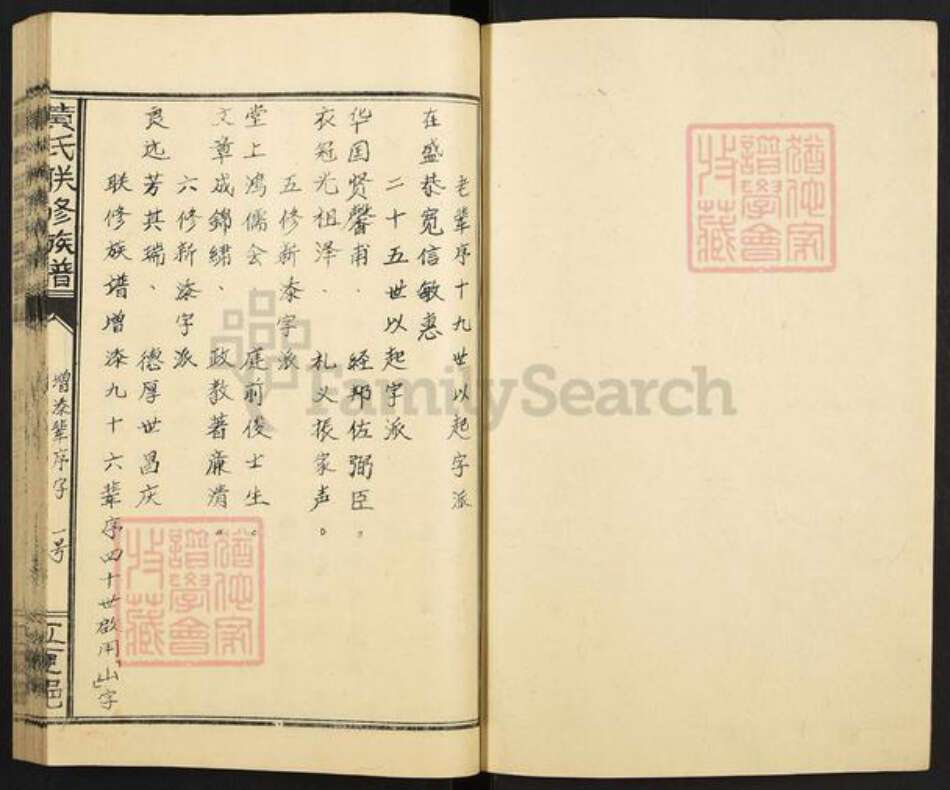 老辈序十九世以起字派
在盛恭宽信敏惠
二十五世以起字派
华国贤馨甫、经邦佐弼臣。
衣冠光祖泽、礼义振家声。
五修新添字派
堂上鸿儒会、庭前俊士生。
文章成锦绣、政教著廉清。
六修新添字派
良迟芳其瑞、德厚世昌庆
联修族谱增添九十六辈序四十世啟用「山」字
黄氏联修族谱
增添辈序字 一号
江夏邑
猶他家譜學會收藏
猶他家譜學會收藏
FamilySearch